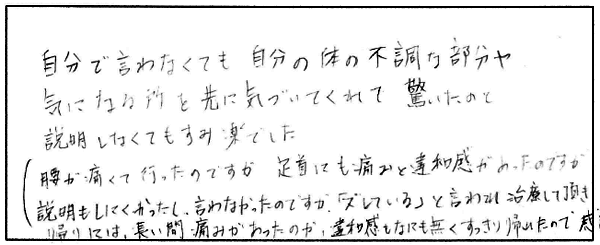 自分で言わなくても 自分の体の不調な部分や
気になる所を先に気づいてくれて 驚いたのと
説明しなくてもすみ楽でした
(腰が痛くて行ったのですが 足首にも痛みと違和感があったのですが
説明もしにくかったし、言わなかったのですが、「ズレている」と言われ治療して頂き
帰りには、長い間痛みがあったのが、違和感もなにも無くすっきり帰れたので 感